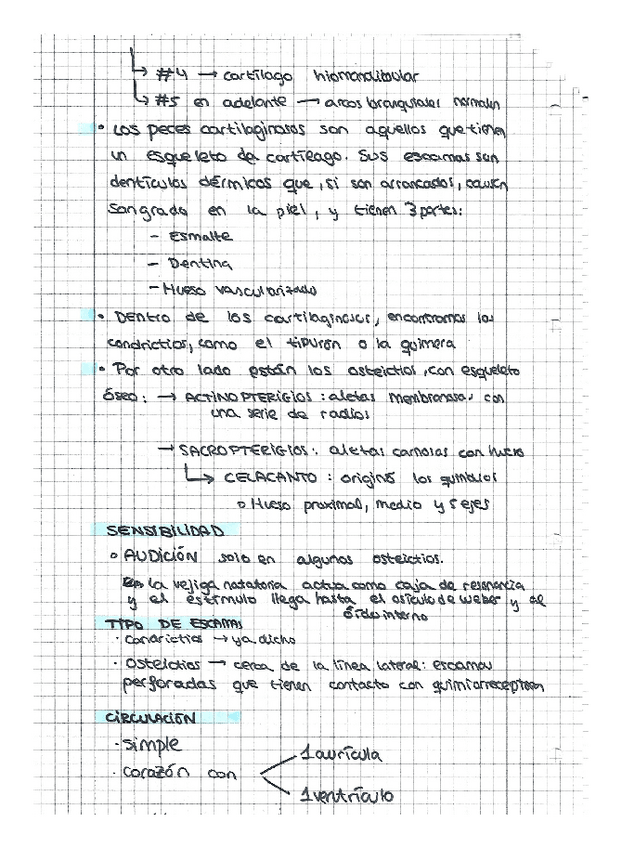 ↳ #4 → cartílago hiomandibular
↳ #5 en adelante → arcos branquiales normales
• Los peces cartilaginosos son aquellos que tienen
un esqueleto de cartílago. Sus escamas son
dentículos dérmicos que, si son arrancados, causan
sangrado en la piel, y tienen 3 partes:
- Esmalte
- Dentina
- Hueso vascularizado
• Dentro de los cartilaginosos, encontramos los
condrictios, como el tiburón o la quimera
• Por otro lado están los osteictios, con esqueleto
óseo: → ACTINOPTERIGIOS: aletas membranosas con
una serie de radios
→ SACROPTERIGIOS: aletas carnosas con hueso
↳ CELACANTO: originó los
o Hueso proximal, medio y 5 ejes
SENSIBILIDAD
o AUDICIÓN solo en algunos osteictios.
la vejiga natatoria actua como caja de resonancia
y el estímulo llega hasta el osículo de Weber y al
oído interno
TIPO DE ESCAMAS
· Condrictios → ya dicho
· Osteictios → cerca de la línea lateral: escamas
perforadas que tienen contacto con quimiorreceptores
CIRCULACIÓN
· simple
· corazón con
1 aurícula
1 ventrículo